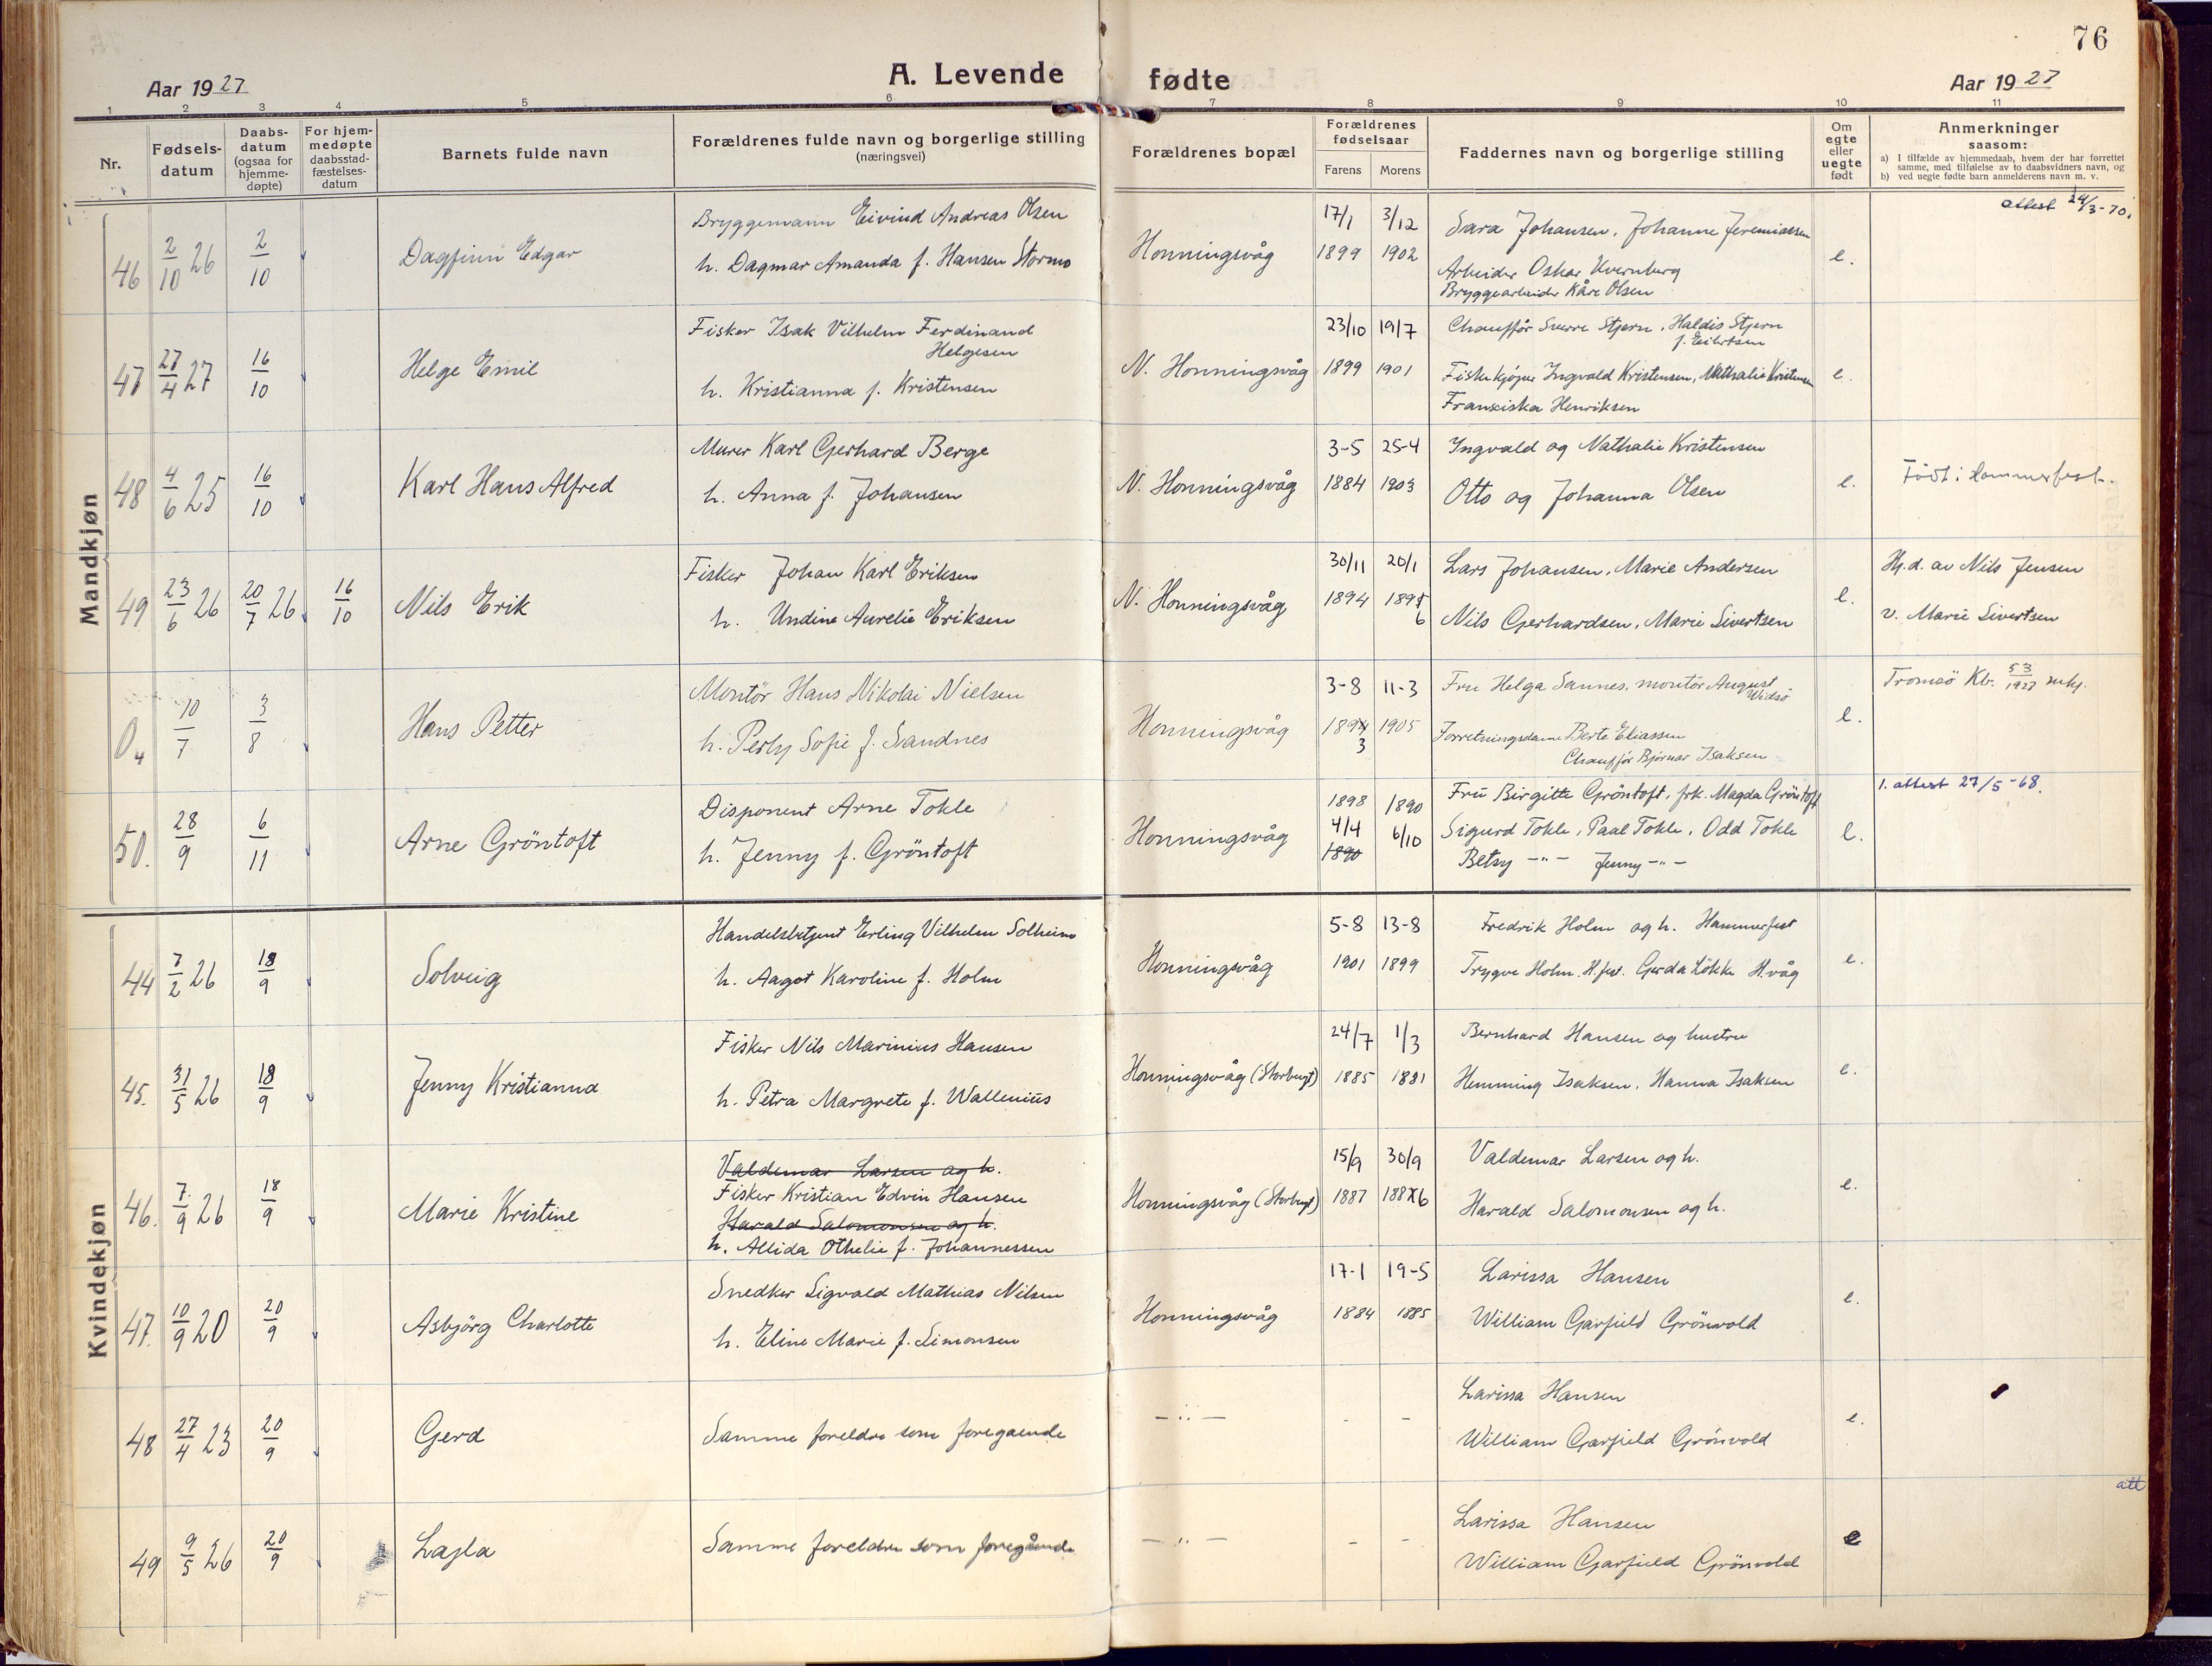 76
Aar 1927
A. Levende fødte
Aar 1927
1 2 3 4 5 6 7 8 9 10 11
Nr.
Fødsels-
datum
Daabs-
datum
(ogsaa for
hjemme-
døpte)
For hjem-
medøpte
daabsstad-
fæstelses-
datum
Barnets fulde navn
Forældrenes fulde navn og borgerlige stilling
(næringsvei)
Forældrenes bopæl
Forældrenes
fødselsaar
Farens Morens
Faddernes navn og borgerlige stilling
Om
egte
eller
uegte
født
Anmerkninger
saasom:
a) I tilfælde av hjemmedaab, hvem der har forrettet
samme, med tilføielse av to daabsvidners navn, og
b) ved uegte fødte barn anmelderens navn m. v.
Mandkjøn
attest 24/3-70.
46 2/10 26 2/10 Dagfinn Edgar
Bryggemann Eivind Andreas Olsen
h. Dagmar Amanda f. Hansen Stormo
Honningsvåg
17/1 3/12
1899 1902
Sara Johansen, Johanne Jeremiassen
Arbeider Oskar Kvernberg
Bryggearbeider Kåre Olsen
e.
47 27/4 27 16/10 Helge Emil
Fisker Isak Vilhelm Ferdinand
Helgesen
h. Kristianna f. Kristensen
N. Honningsvåg
23/10 19/7
1899 1901
Chauffør Sverre Stjern, Haldis Stjern
f. Eilertsen
Fiskekjøper Ingvald Kristensen, Nathalie Kristensen
Franciska Henriksen
e.
48 4/6 25 16/10 Karl Hans Alfred
Murer Karl Gerhard Berge
h. Anna f. Johansen
N. Honningsvåg
3-5 25-4
1884 1903
Ingvald og Nathalie Kristensen
Otto og Johanna Olsen
e.
Født i Hammerfest.
49 23/6 26 20/7 26 16/10 Nils Erik
Fisker Johan Karl Eriksen
h. Undine Aurelie Eriksen
N. Honningsvåg
30/11 20/1
1894 1895
6
Lars Johansen, Marie Andersen
Nils Gerhardsen, Marie Sivertsen
e.
Hj.d. av Nils Jensen
v. Marie Sivertsen
0 4 10/7 3/8 Hans Petter
Montör Hans Nikolai Nielsen
h. Perly Sofie f. Sandnes
Honningsvåg
3-8 11-3
1894 1905
3
Fru Helga Sannes, montör August
Widsö
Forretningsdame Berte Eliassen
Chauffør Bjørnar Isaksen
e.
Tromsö Kb. 53/1927 mkj.
50. 28/9 6/11 Arne Gröntoft
Disponent Arne Tokle
h. Jenny f. Gröntoft
Honningsvåg
1898 1890
4/4 6/10
1890
Fru Birgitte Gröntoft, frk. Magda Gröntoft
Sigurd Tokle, Paal Tokle, Odd Tokle
Betsy -"- Jenny -"-
e.
1. attest 27/5-68.
Kvindekjøn
44 7/2 26 18/9 Solveig
Handelsbetjent Erling Vilhelm Solheim
h. Aagot Karoline f. Holm
Honningsvåg
5-8 13-8
1901 1899
Fredrik Holm og h. Hammerfest
Trygve Holm. H.fest. Gerda Lökke H.våg
e.
45. 31/5 26 18/9 Jenny Kristianna
Fisker Nils Marinius Hansen
h. Petra Margrete f. Wallenius
Honningsvåg (Storbugt)
24/7 1/3
1885 1881
Bernhard Hansen og hustru
Hemming Isaksen, Hanna Isaksen
e.
46. 7/9 26 18/9 Marie Kristine
Valdemar Larsen og h.
Fisker Kristian Edvin Hansen
Harald Salomonsen og h.
h. Allida Othelie f. Johannessen
Honningsvåg (Storbugt)
15/9 30/9
1887 1886
Valdemar Larsen og h.
Harald Salomonsen og h.
e.
47. 10/9 20 20/9 Asbjörg Charlotte
Snedker Sigvald Mathias Nilsen
h. Eline Marie f. Simonsen
Honningsvåg
17-1 19-5
1884 1885
Larissa Hansen
William Garfield Grönvold
e.
48 27/4 23 20/9 Gerd
Samme foreldre som foregaende
-"- - -
Larissa Hansen
William Garfield Grönvold
e.
att
49 9/5 26 20/9 Lajla
Samme foreldre som foregående
-"- - -
Larissa Hansen
William Garfield Grönvold
e